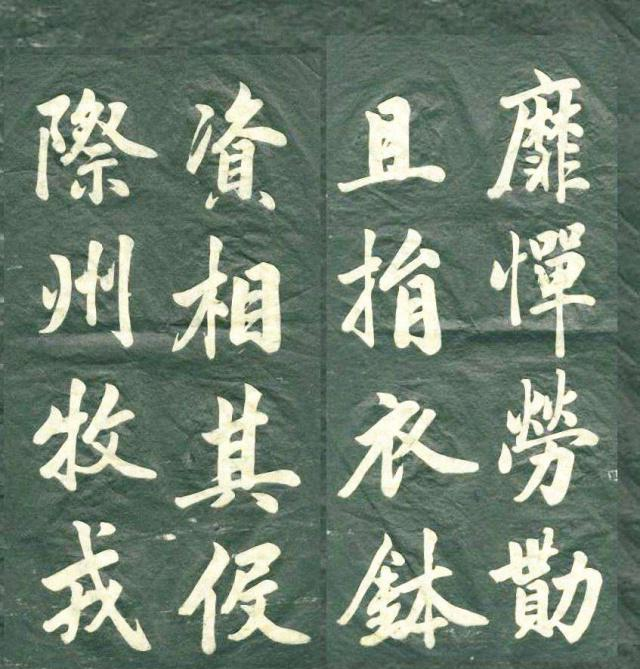 靡憚勞勩
且捐衣鉢
資相其役
際州牧戎